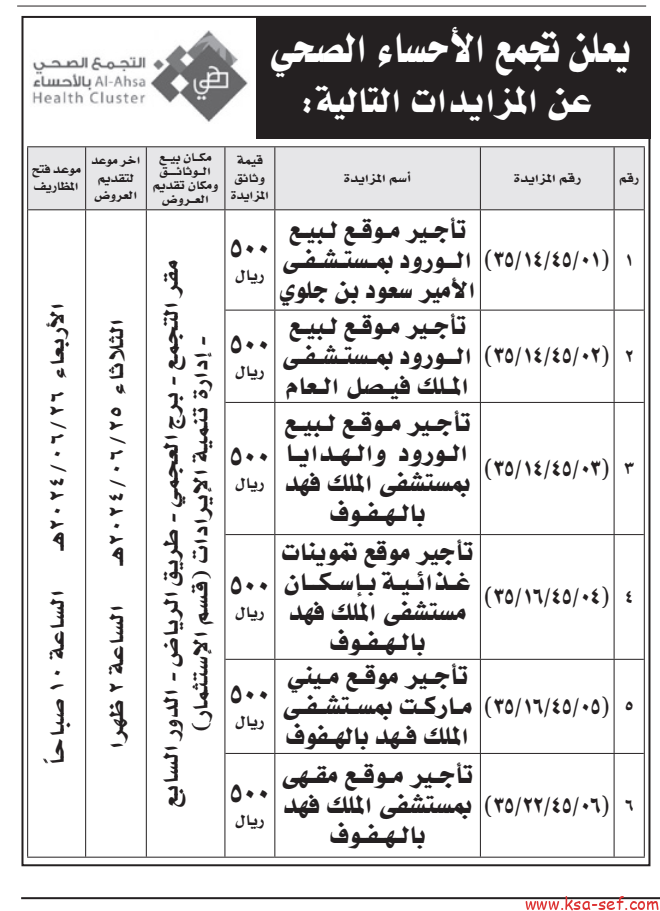 يعلن تجمع الأحساء الصحي
عن المزايدات التالية:
التجمع الصحي
بالأحساء Al-Ahsa
Health Cluster
رقم
رقم المزايدة
أسم المزايدة
قيمة
وثائق
المزايدة
مكان بيع
الوثائق
ومكان تقديم
العروض
اخر موعد
لتقديم
العروض
موعد فتح
المظاريف
١
(٣٥/١٤/٤٥/٠١)
تأجير موقع لبيع
الورود بمستشفى
الأمير سعود بن جلوي
٥٠٠
ريال
٢
(٣٥/١٤/٤٥/٠٢)
تأجير موقع لبيع
الورود بمستشفى
الملك فيصل العام
٥٠٠
ريال
٣
(٣٥/١٤/٤٥/٠٣)
تأجير موقع لبيع
الورود والهدايا
بمستشفى الملك فهد
بالهفوف
٥٠٠
ريال
٤
(٣٥/١٦/٤٥/٠٤)
تأجير موقع تموينات
غذائية بإسكان
مستشفى الملك فهد
بالهفوف
٥٠٠
ريال
٥
(٣٥/١٦/٤٥/٠٥)
تأجير موقع ميني
ماركت بمستشفى
الملك فهد بالهفوف
٥٠٠
ريال
٦
(٣٥/٢٢/٤٥/٠٦)
تأجير موقع مقهى
بمستشفى الملك فهد
بالهفوف
٥٠٠
ريال
مقر التجمع - برج العجمي - طريق الرياض - الدور السابع
- إدارة تنمية الإيرادات (قسم الإستثمار)
الثلاثاء ٢٠٢٤/٠٦/٢٥هـ الساعة ٢ ظهرا
الأربعاء ٢٠٢٤/٠٦/٢٦هـ الساعة ١٠ صباحاً
www.ksa-sef.com